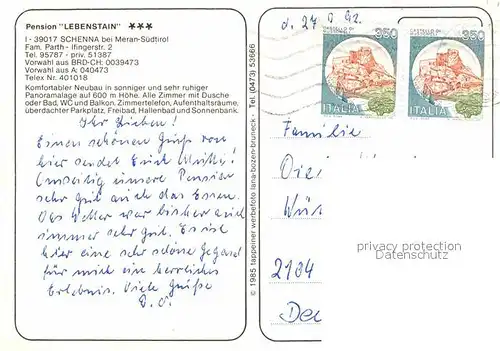 Pension "LEBENSTAIN" ***
I - 39017 SCHENNA bei Meran-Südtirol
Fam. Parth - Ifingerstr. 2
Tel. 95787 - priv. 51387
Vorwahl aus BRD-CH: 0039473
Vorwahl aus A: 040473
Telex Nr. 401018
Komfortabler Neubau in sonniger und sehr ruhiger
Panoramalage auf 600 m Höhe. Alle Zimmer mit Dusche
oder Bad, WC und Balkon. Zimmertelefon, Aufenthaltsräume,
überdachter Parkplatz, Freibad, Hallenbad und Sonnenbank.
Ihr Lieben!
Einen schönen Gruß von
hier sendet Euch Mutti!
unsere Pension
sehr gut auch das Essen.
Das Wetter war bisher auch
immer sehr gut. Es ist
hier eine sehr schöne Gegend
für mich ein herrliches
Erlebnis. Viele Grüße
© 1985 tappeiner werbefoto lana-bozen-bruneck - Tel. (0473) 53666
d. 27 92.
350
ITALIA
350
ITALIA
Familie
2104
privacy protection
Datenschutz